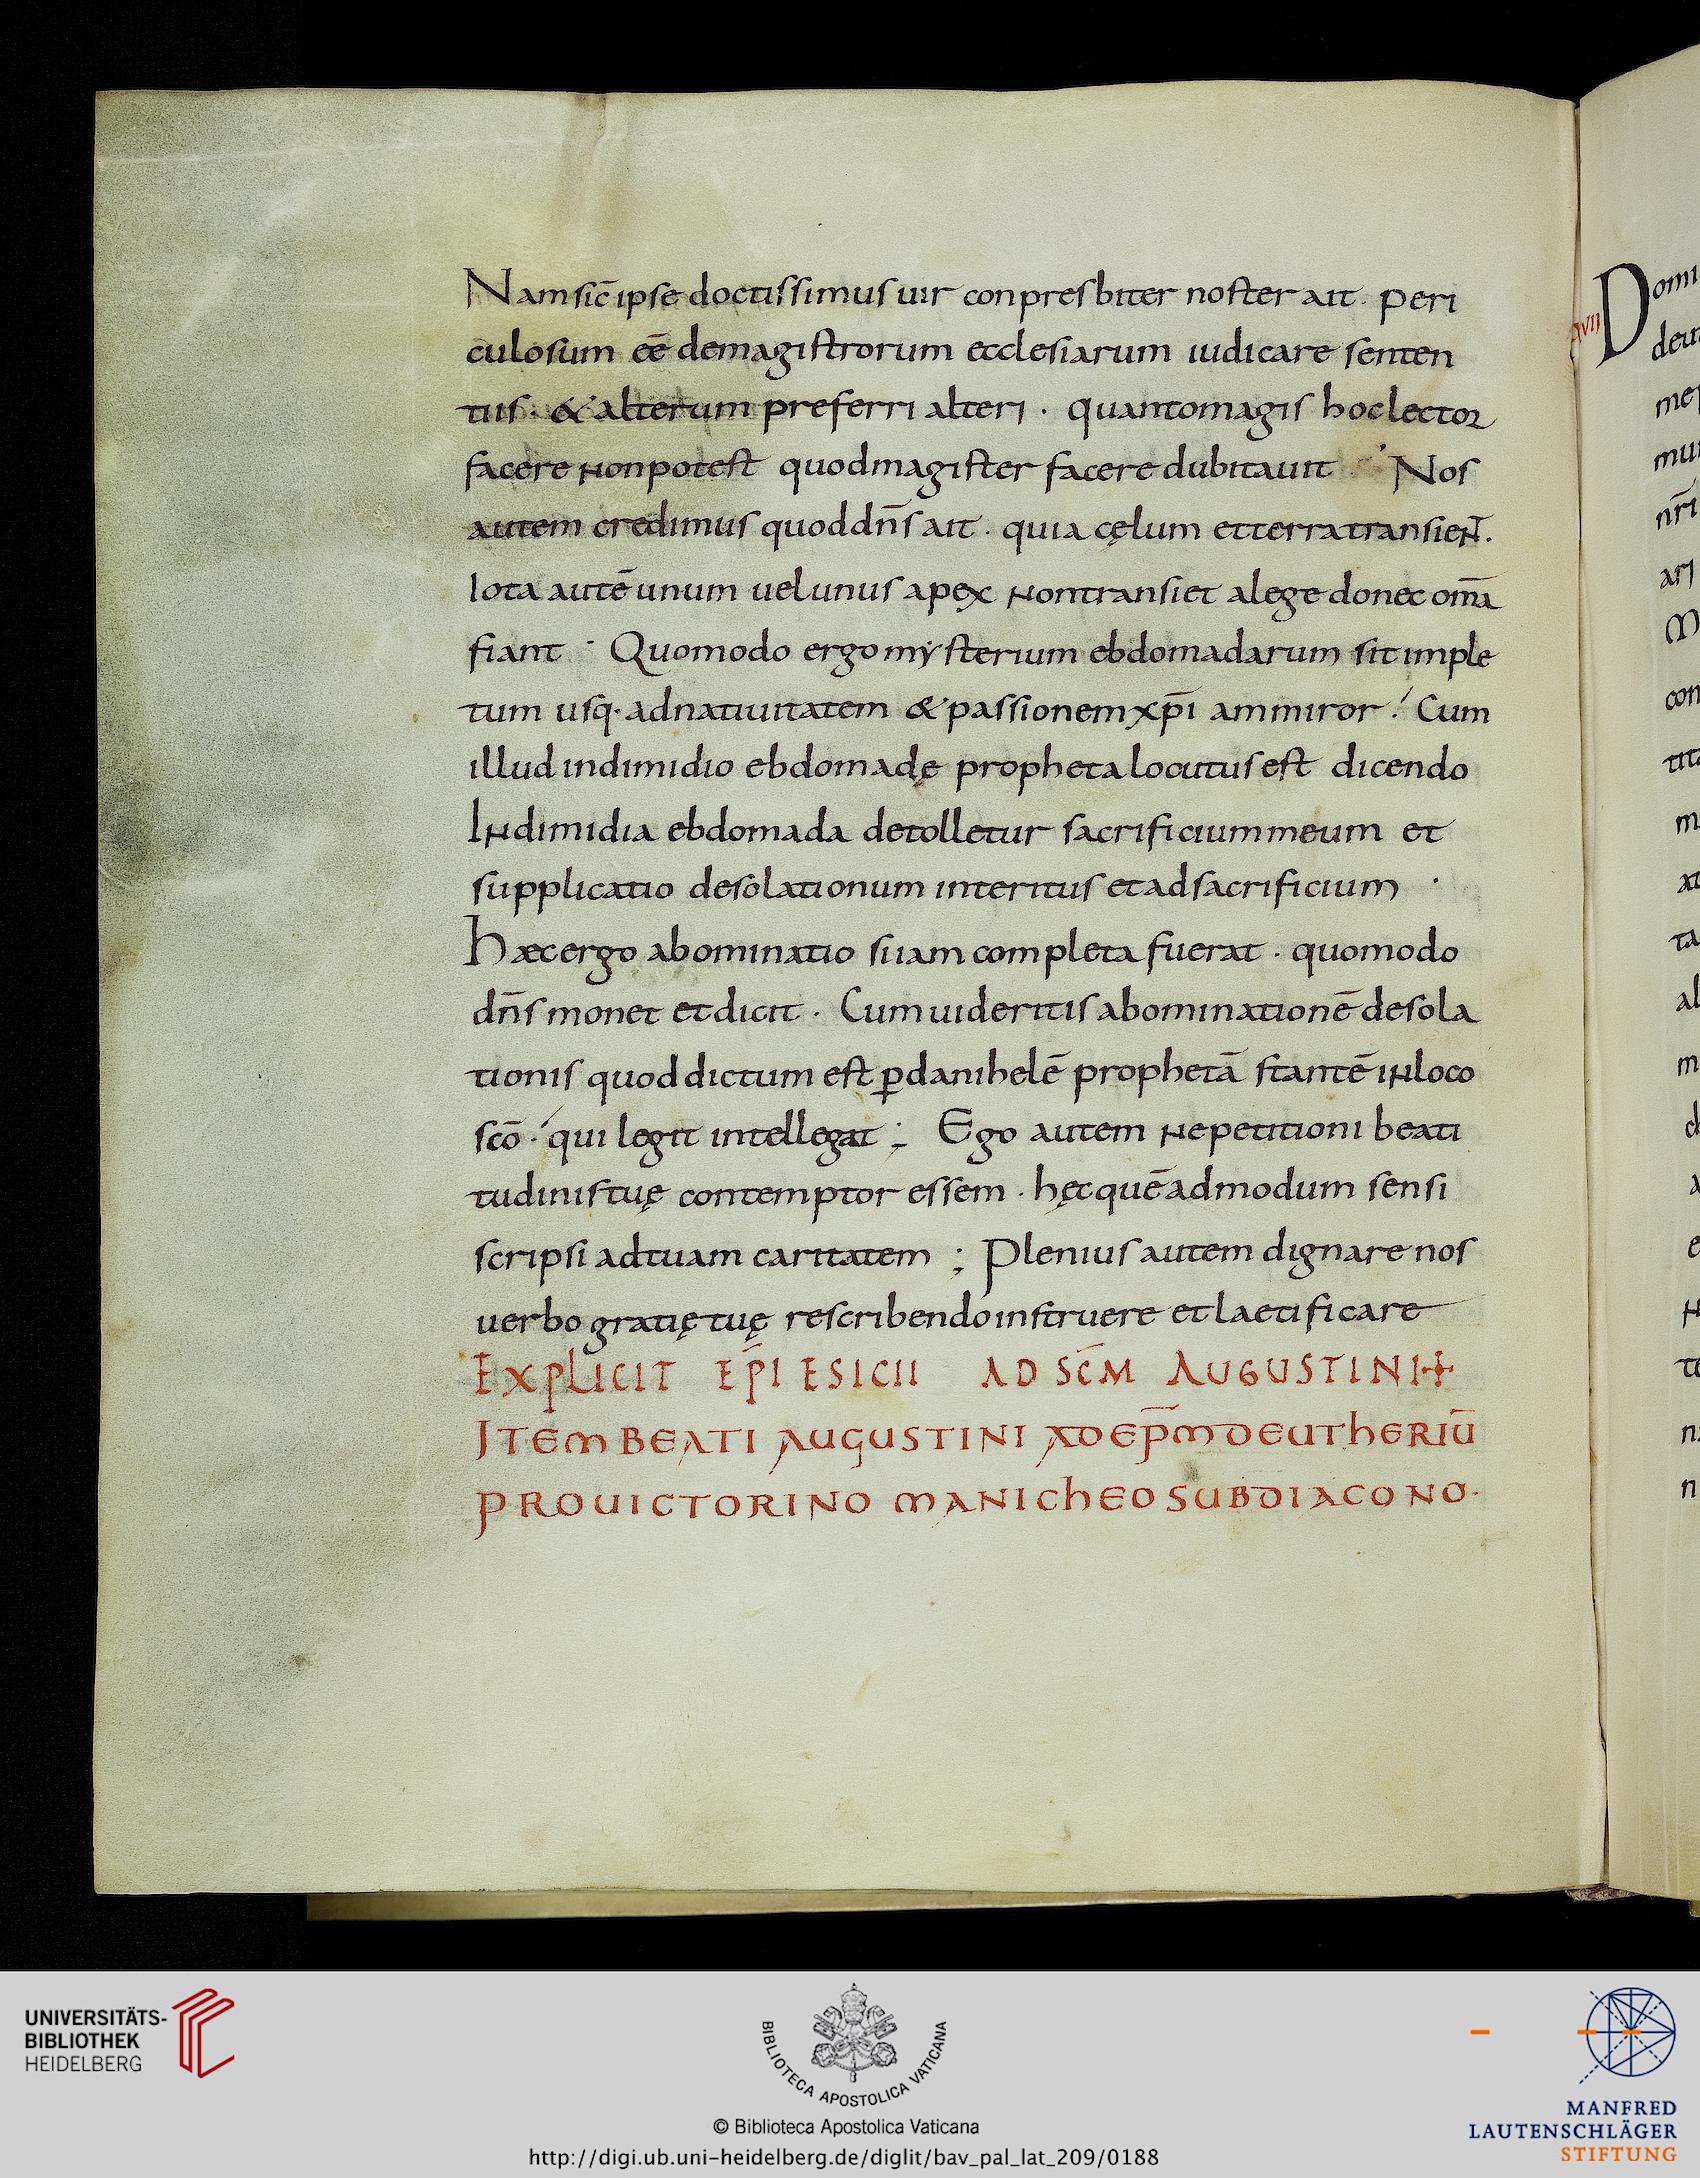 Nam sic̄ ipse doctissimus uir conpresbiter noster ait. Peri
culosum eē demagistrorum ecclesiarum iudicare senten
tiis. & alterum preferri alteri. quantomagis hoc lector
facere non potest quod magister facere dubitauit Nos
autem credimus quod dn̄s ait. quia cęlum et terra transien̄t.
Iota autē unum uel unus apex non transiet alege donec om̄a
fiant. Quomodo ergo mẏsterium ebdomadarum sit imple
tum usq. ad natiuitatem & passionem xp̄i ammiror. Cum
illud in dimidio ebdomadę propheta locutus est dicendo
In dimidia ebdomada detolletur sacrificium meum et
supplicatio desolationum interitus et ad sacrificium.
Haec ergo abominatio si iam completa fuerat. quomodo
dn̄s monet et dicit. Cum uideritis abominationē desola
tionis quod dictum est ꝑ danihelē prophetā stantē in loco
scō. qui legit intellegat; Ego autem ne petitioni beati
tudinis tuę contemptor essem. hęc quē admodum sensi
scripsi ad tuam caritatem; Plenius autem dignare nos
uerbo gratię tuę rescribendo instruere et laetificare
EXPLICIT EP̄I ESICII AD SC̄M AUGUSTINI
ITEM BEATI AUGUSTINI AD EP̄M DEUTHERIŪ
PRO UICTORINO MANICHEO SUBDIACONO.
xvii
Domi
deu
me
mu
nr̄i
ari
con
tit
m
at
ta
al
m
UNIVERSITÄTS-
BIBLIOTHEK
HEIDELBERG
BIBLIOTECA APOSTOLICA VATICANA
© Biblioteca Apostolica Vaticana
http://digi.ub.uni-heidelberg.de/diglit/bav_pal_lat_209/0188
MANFRED
LAUTENSCHLÄGER
STIFTUNG